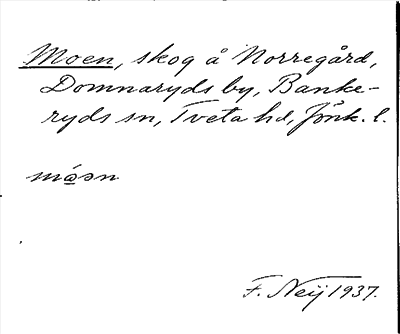 Moen, skog å Norregård,
Domnaryds by, Banke-
ryds sn, Tveta hd, Jönk. l.
måsn
F. Neij 1937.